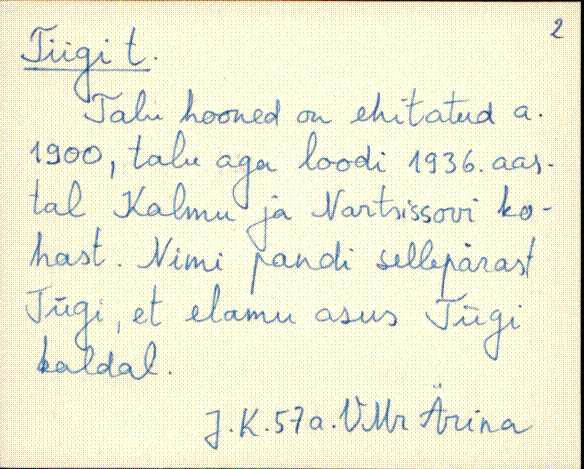 2
Tiigi t.
Talu hooned on ehitatud a.
1900, talu aga loodi 1936. aas-
tal Kalmu ja Nartsissovi ko-
hast. Nimi pandi sellepärast
Tiigi, et elamu asus Tiigi
kaldal.
J.K. 57a. VMr Ärina